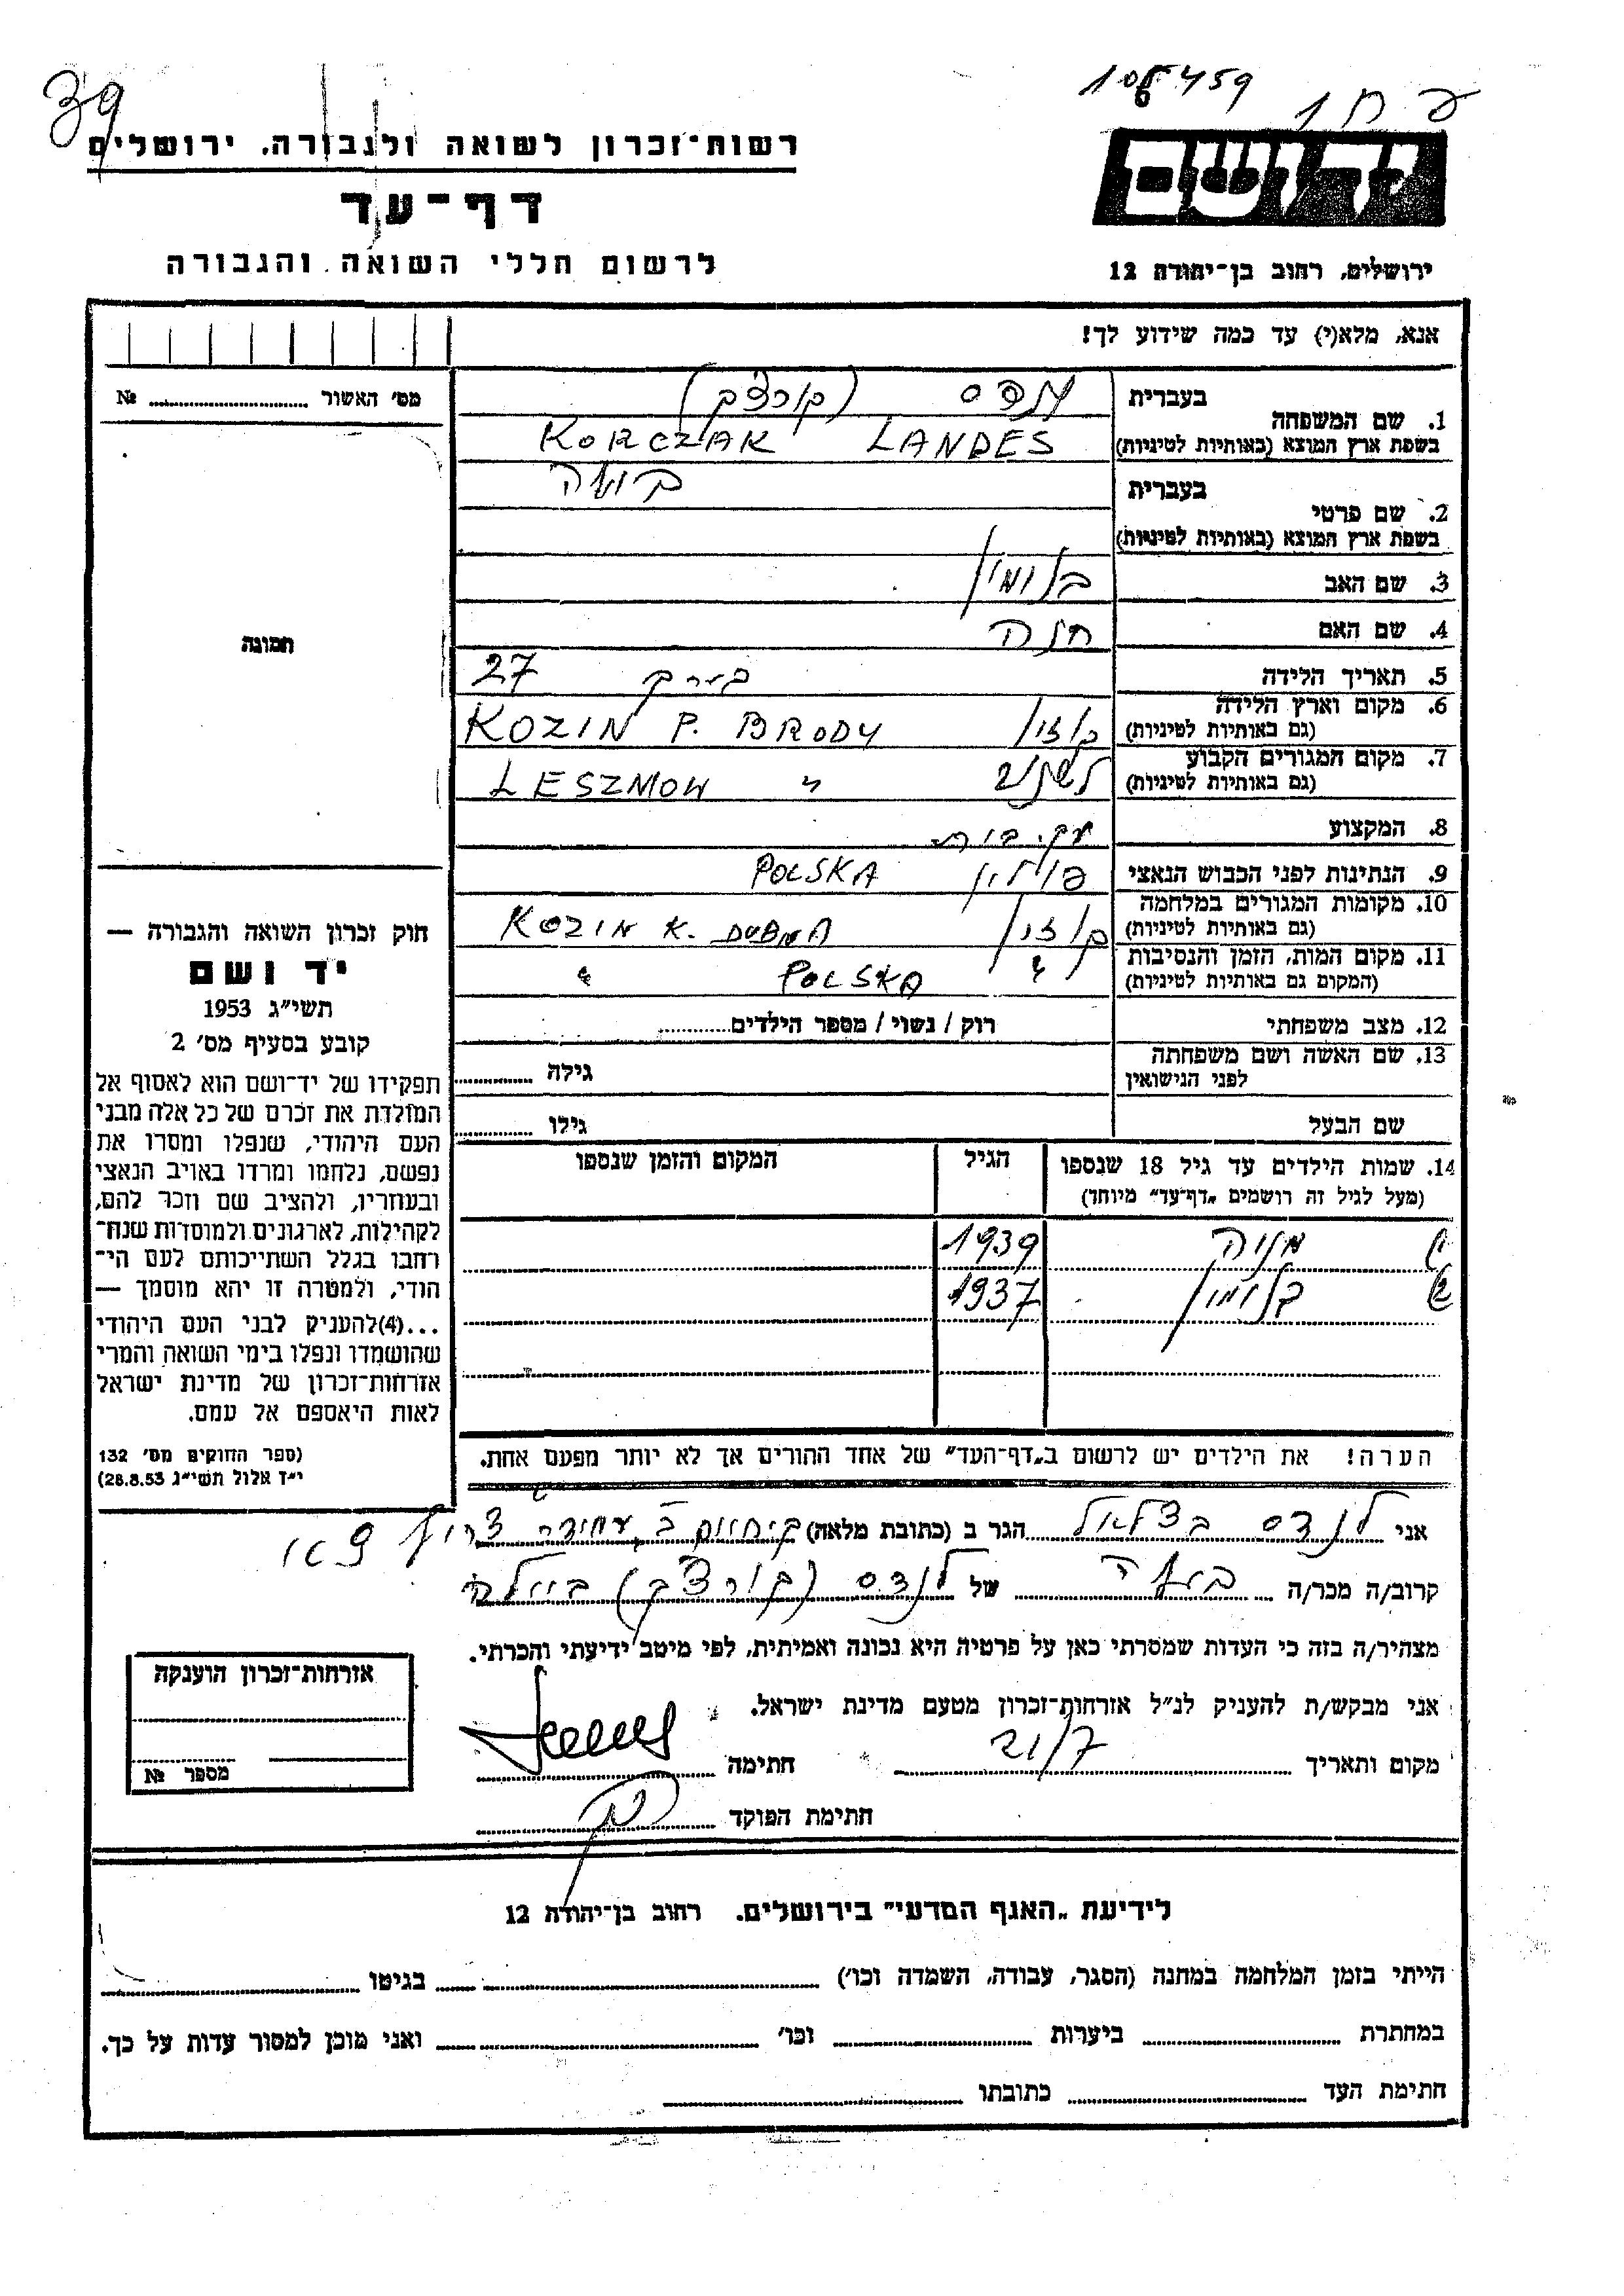 39
108459
ע ח 1
רשות־זכרון לשואה ולגבורה, ירושלים
דף־עד
לרשום חללי השואה והגבורה
ידושם
ירושלים, רחוב בן־יהודה 12
אנא, מלא(י) עד כמה שידוע לך!
מס׳ האשור № ........
1. שם המשפחה
בעברית (קורצ׳ק)
בשפת ארץ המוצא (באותיות לטיניות) LANDES KORCZAK
2. שם פרטי
בעברית
בשפת ארץ המוצא (באותיות לטיניות)
3. שם האב
4. שם האם חנה
5. תאריך הלידה 27
6. מקום וארץ הלידה
(גם באותיות לטיניות) קוזין KOZIN P. BRODY
7. מקום המגורים הקבוע
(גם באותיות לטיניות) לשניב " LESZNOW
8. המקצוע עק. בית
9. הנתינות לפני הכבוש הנאצי פולין POLSKA
10. מקומות המגורים במלחמה
(גם באותיות לטיניות) קוזין KOZIN K. DUBNA
11. מקום המות, הזמן והנסיבות
(המקום גם באותיות לטיניות) " POLSKA "
12. מצב משפחתי רוק / נשוי / מספר הילדים........
13. שם האשה ושם משפחתה
לפני הנישואין גילה ........
שם הבעל גילו ........
14. שמות הילדים עד גיל 18 שנספו
(מעל לגיל זה רושמים „דף־עד״ מיוחד)
הגיל
המקום והזמן שנספו
1939
1937
הערה! את הילדים יש לרשום ב„דף־העד״ של אחד ההורים אך לא יותר מפעם אחת.
תמונה
חוק זכרון השואה והגבורה —
יד ושם
תשי״ג 1953
קובע בסעיף מס׳ 2
תפקידו של יד־ושם הוא לאסוף אל
המולדת את זכרם של כל אלה מבני
העם היהודי, שנפלו ומסרו את
נפשם, נלחמו ומרדו באויב הנאצי
ובעוזריו, ולהציב שם וזכר להם,
לקהילות, לארגונים ולמוסדות שנח־
רחבו בגלל השתייכותם לעם הי־
הודי, ולמטרה זו יהא מוסמך —
...(4)להעניק לבני העם היהודי
שהושמדו ונפלו בימי השואה והמרי
אזרחות־זכרון של מדינת ישראל
לאות היאספם אל עמם.
(ספר החוקים מס׳ 132
י״ד אלול תשי״ג 28.8.53)
אני לנדס בצלאל הגר ב (כתובת מלאה)
קרוב/ה מכר/ה של לנדס (קורצ׳ק)
מצהיר/ה בזה כי העדות שמסרתי כאן על פרטיה היא נכונה ואמיתית, לפי מיטב ידיעתי והכרתי.
אני מבקש/ת להעניק לנ״ל אזרחות־זכרון מטעם מדינת ישראל.
מקום ותאריך 21/7 חתימה
חתימת הפוקד
אזרחות־זכרון הוענקה
מספר №
לידיעת „האגף המדעי״ בירושלים. רחוב בן־יהודה 12
הייתי בזמן המלחמה במחנה (הסגר, עבודה, השמדה וכו׳) ........ בגיטו ........
במחתרת ........ ביערות ........ וכו׳ ........ ואני מוכן למסור עדות על כך.
חתימת העד ........ כתובתו ........